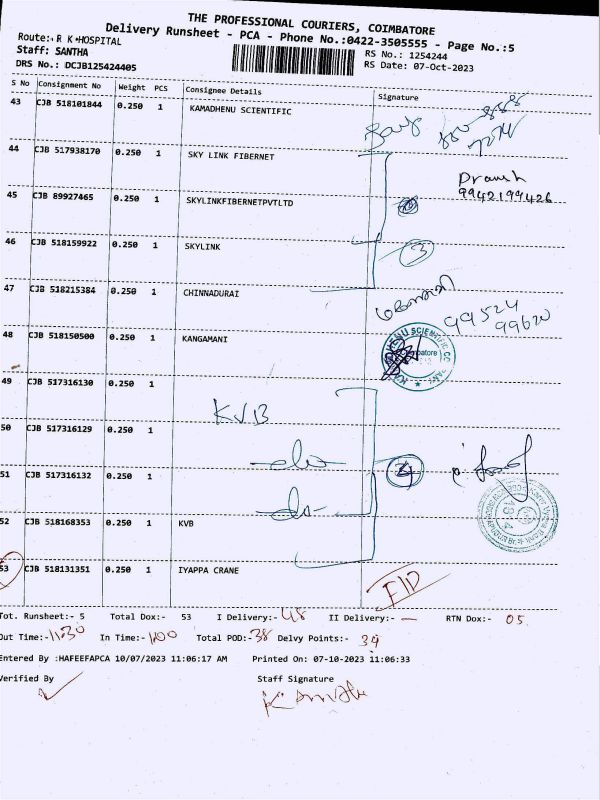 THE PROFESSIONAL COURIERS, COIMBATORE
Delivery Runsheet - PCA - Phone No.:0422-3505555 - Page No.:5
Route:- R K HOSPITAL
RS No.: 1254244
Staff: SANTHA
RS Date: 07-Oct-2023
DRS No.: DCJB125424405
S No Consignment No Weight PCS Consignee Details Signature
43 CJB 518101844 0.250 1 KAMADHENU SCIENTIFIC
44 CJB 517938170 0.250 1 SKY LINK FIBERNET
9942199426
45 CJB 89927465 0.250 1 SKYLINKFIBERNETPVTLTD
46 CJB 518159922 0.250 1 SKYLINK
3
47 CJB 518215384 0.250 1 CHINNADURAI
99524
99620
48 CJB 518150500 0.250 1 KANGAMANI
49 CJB 517316130 0.250 1
KVB
50 CJB 517316129 0.250 1
-do-
4
51 CJB 517316132 0.250 1
-do-
52 CJB 518168353 0.250 1 KVB
53 CJB 518131351 0.250 1 IYAPPA CRANE
Tot. Runsheet:- 5 Total Dox:- 53 I Delivery:- 48 II Delivery:- — RTN Dox:- 05
Out Time:- 11.30 In Time:- 1.00 Total POD:- 38 Delvy Points:- 34
Entered By :HAFEEFAPCA 10/07/2023 11:06:17 AM Printed On: 07-10-2023 11:06:33
Verified By Staff Signature